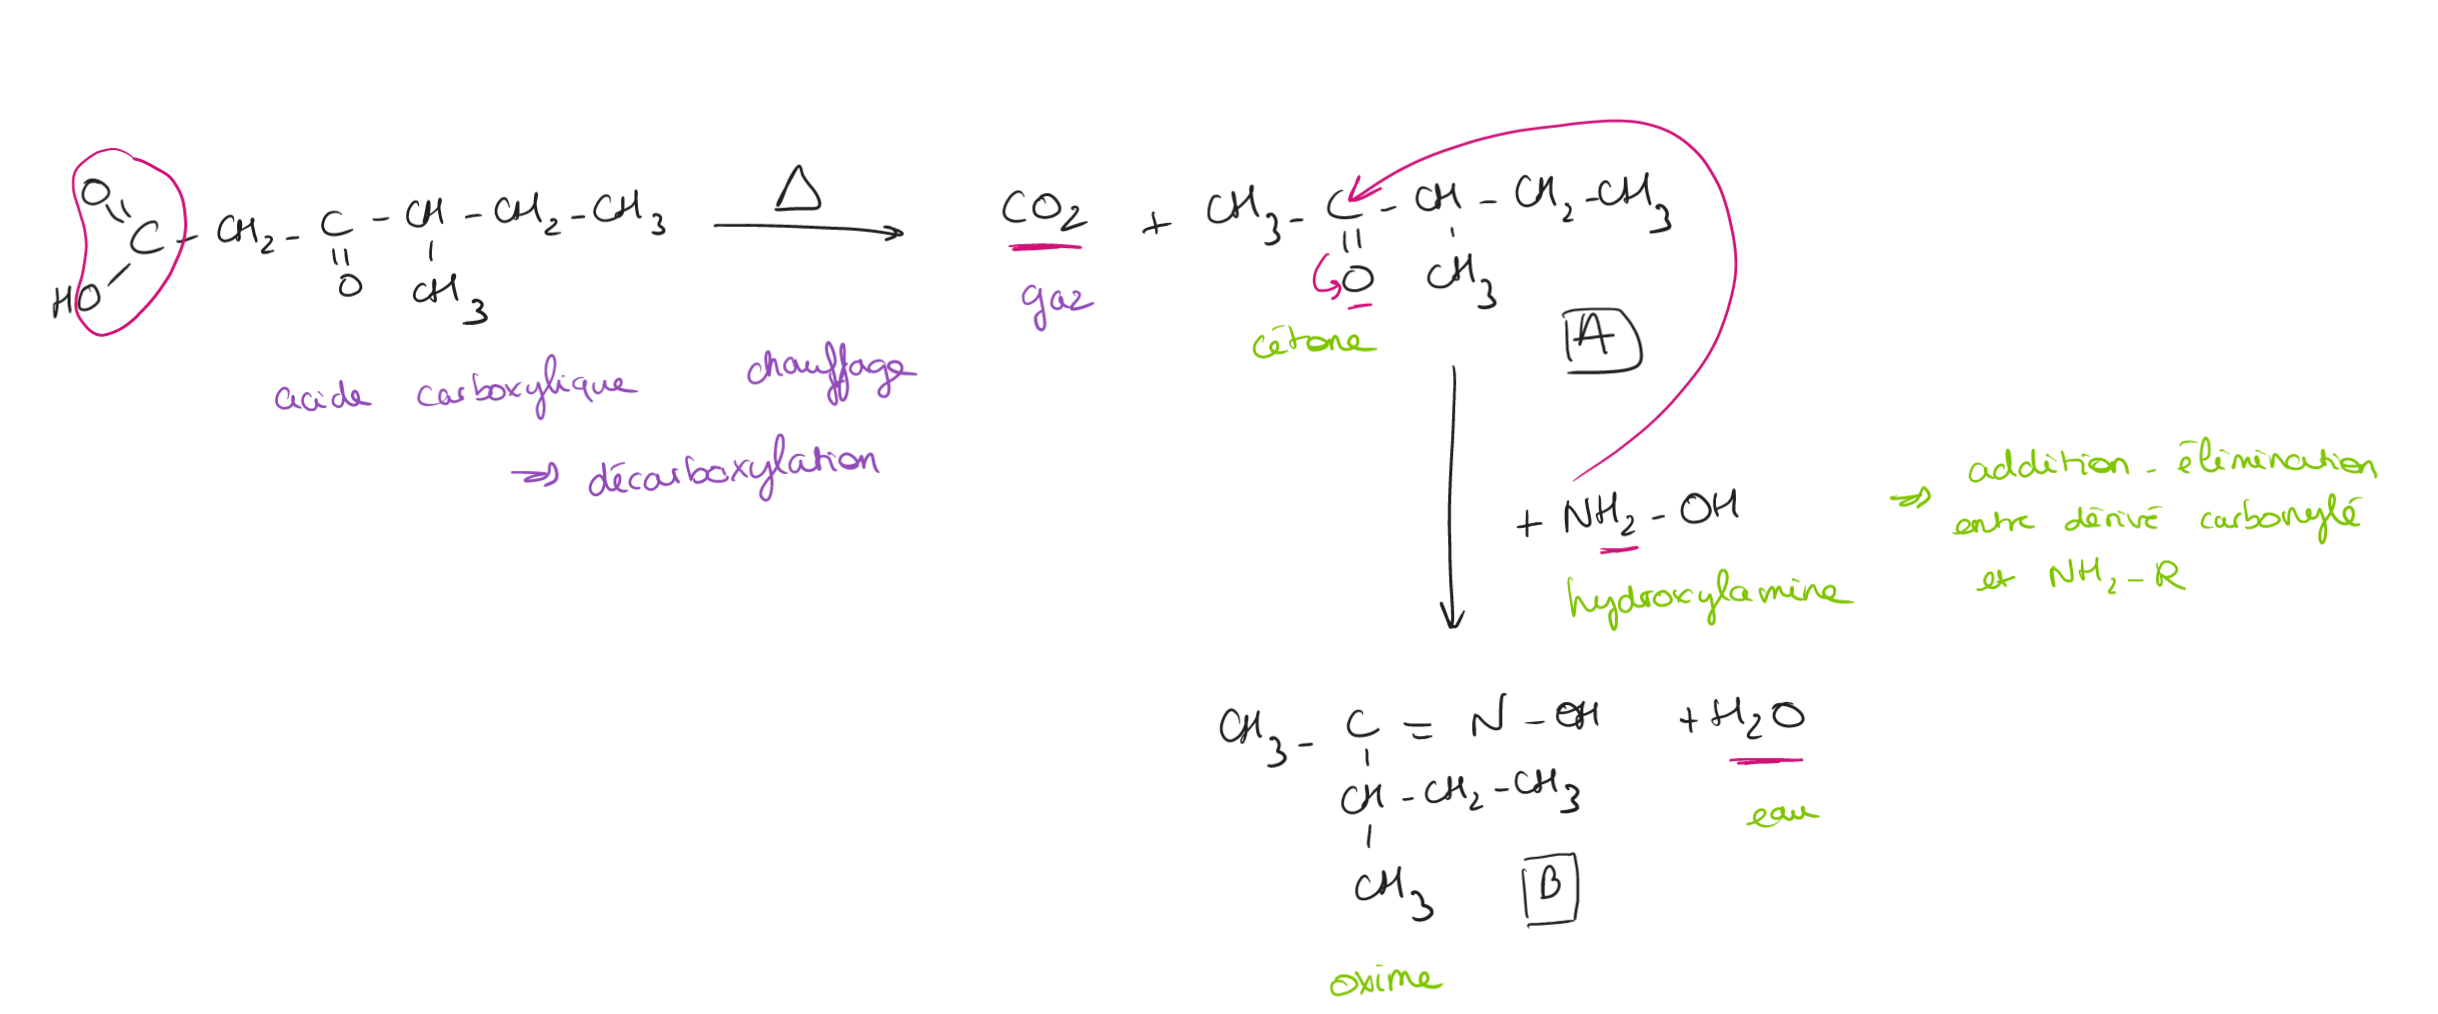 O
HO
C - CH2 - C - CH - CH2 - CH3
O
CH3
acide carboxylique
Δ
chauffage
⇒ décarboxylation
CO2 + CH3 - C - CH - CH2 - CH3
gaz
O
CH3
cétone
A
+ NH2 - OH
hydroxylamine
⇒ addition - élimination
entre dérivé carbonylé
et NH2 - R
CH3 - C = N - OH + H2O
eau
CH - CH2 - CH3
CH3
B
oxime